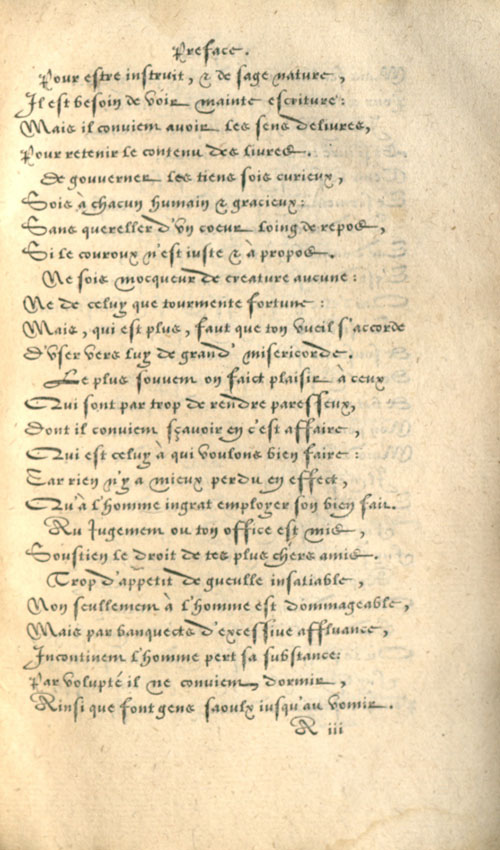 Preface.
Pour estre instruit, & de sage nature,
Il est besoin de voir mainte escriture:
Mais il convient avoir les sens delivres,
Pour retenir le contenu des livres.
De gouverner les tiens sois curieux,
Sois à chacun humain & gracieux:
Sans quereller d'vn coeur loing de repos,
Si le couroux n'est iuste & à propos.
Ne sois mocqueur de creature aucune:
Ne de celuy que tourmente fortune:
Mais, qui est plus, faut que ton vueil s'accorde
D'vser vers luy de grand' misericorde.
Le plus souvent on faict plaisir à ceux
Qui sont par trop de rendre paresseux,
Dont il convient sçavoir en c'est affaire,
Qui est celuy à qui voulons bien faire:
Car rien n'y a mieux perdu en effect,
Qu'à l'homme ingrat employer son bien fait.
Au Jugement ou ton office est mis,
Soustien le droit de tes plus chers amis.
Trop d'appetit de gueulle insatiable,
Non seullement à l'homme est dommageable,
Mais par banquects d'excessive affluance,
Incontinent l'homme pert sa substance:
Par volupté il ne convient, dormir,
Ainsi que font gens saoulx iusqu'au vomir.
A iii